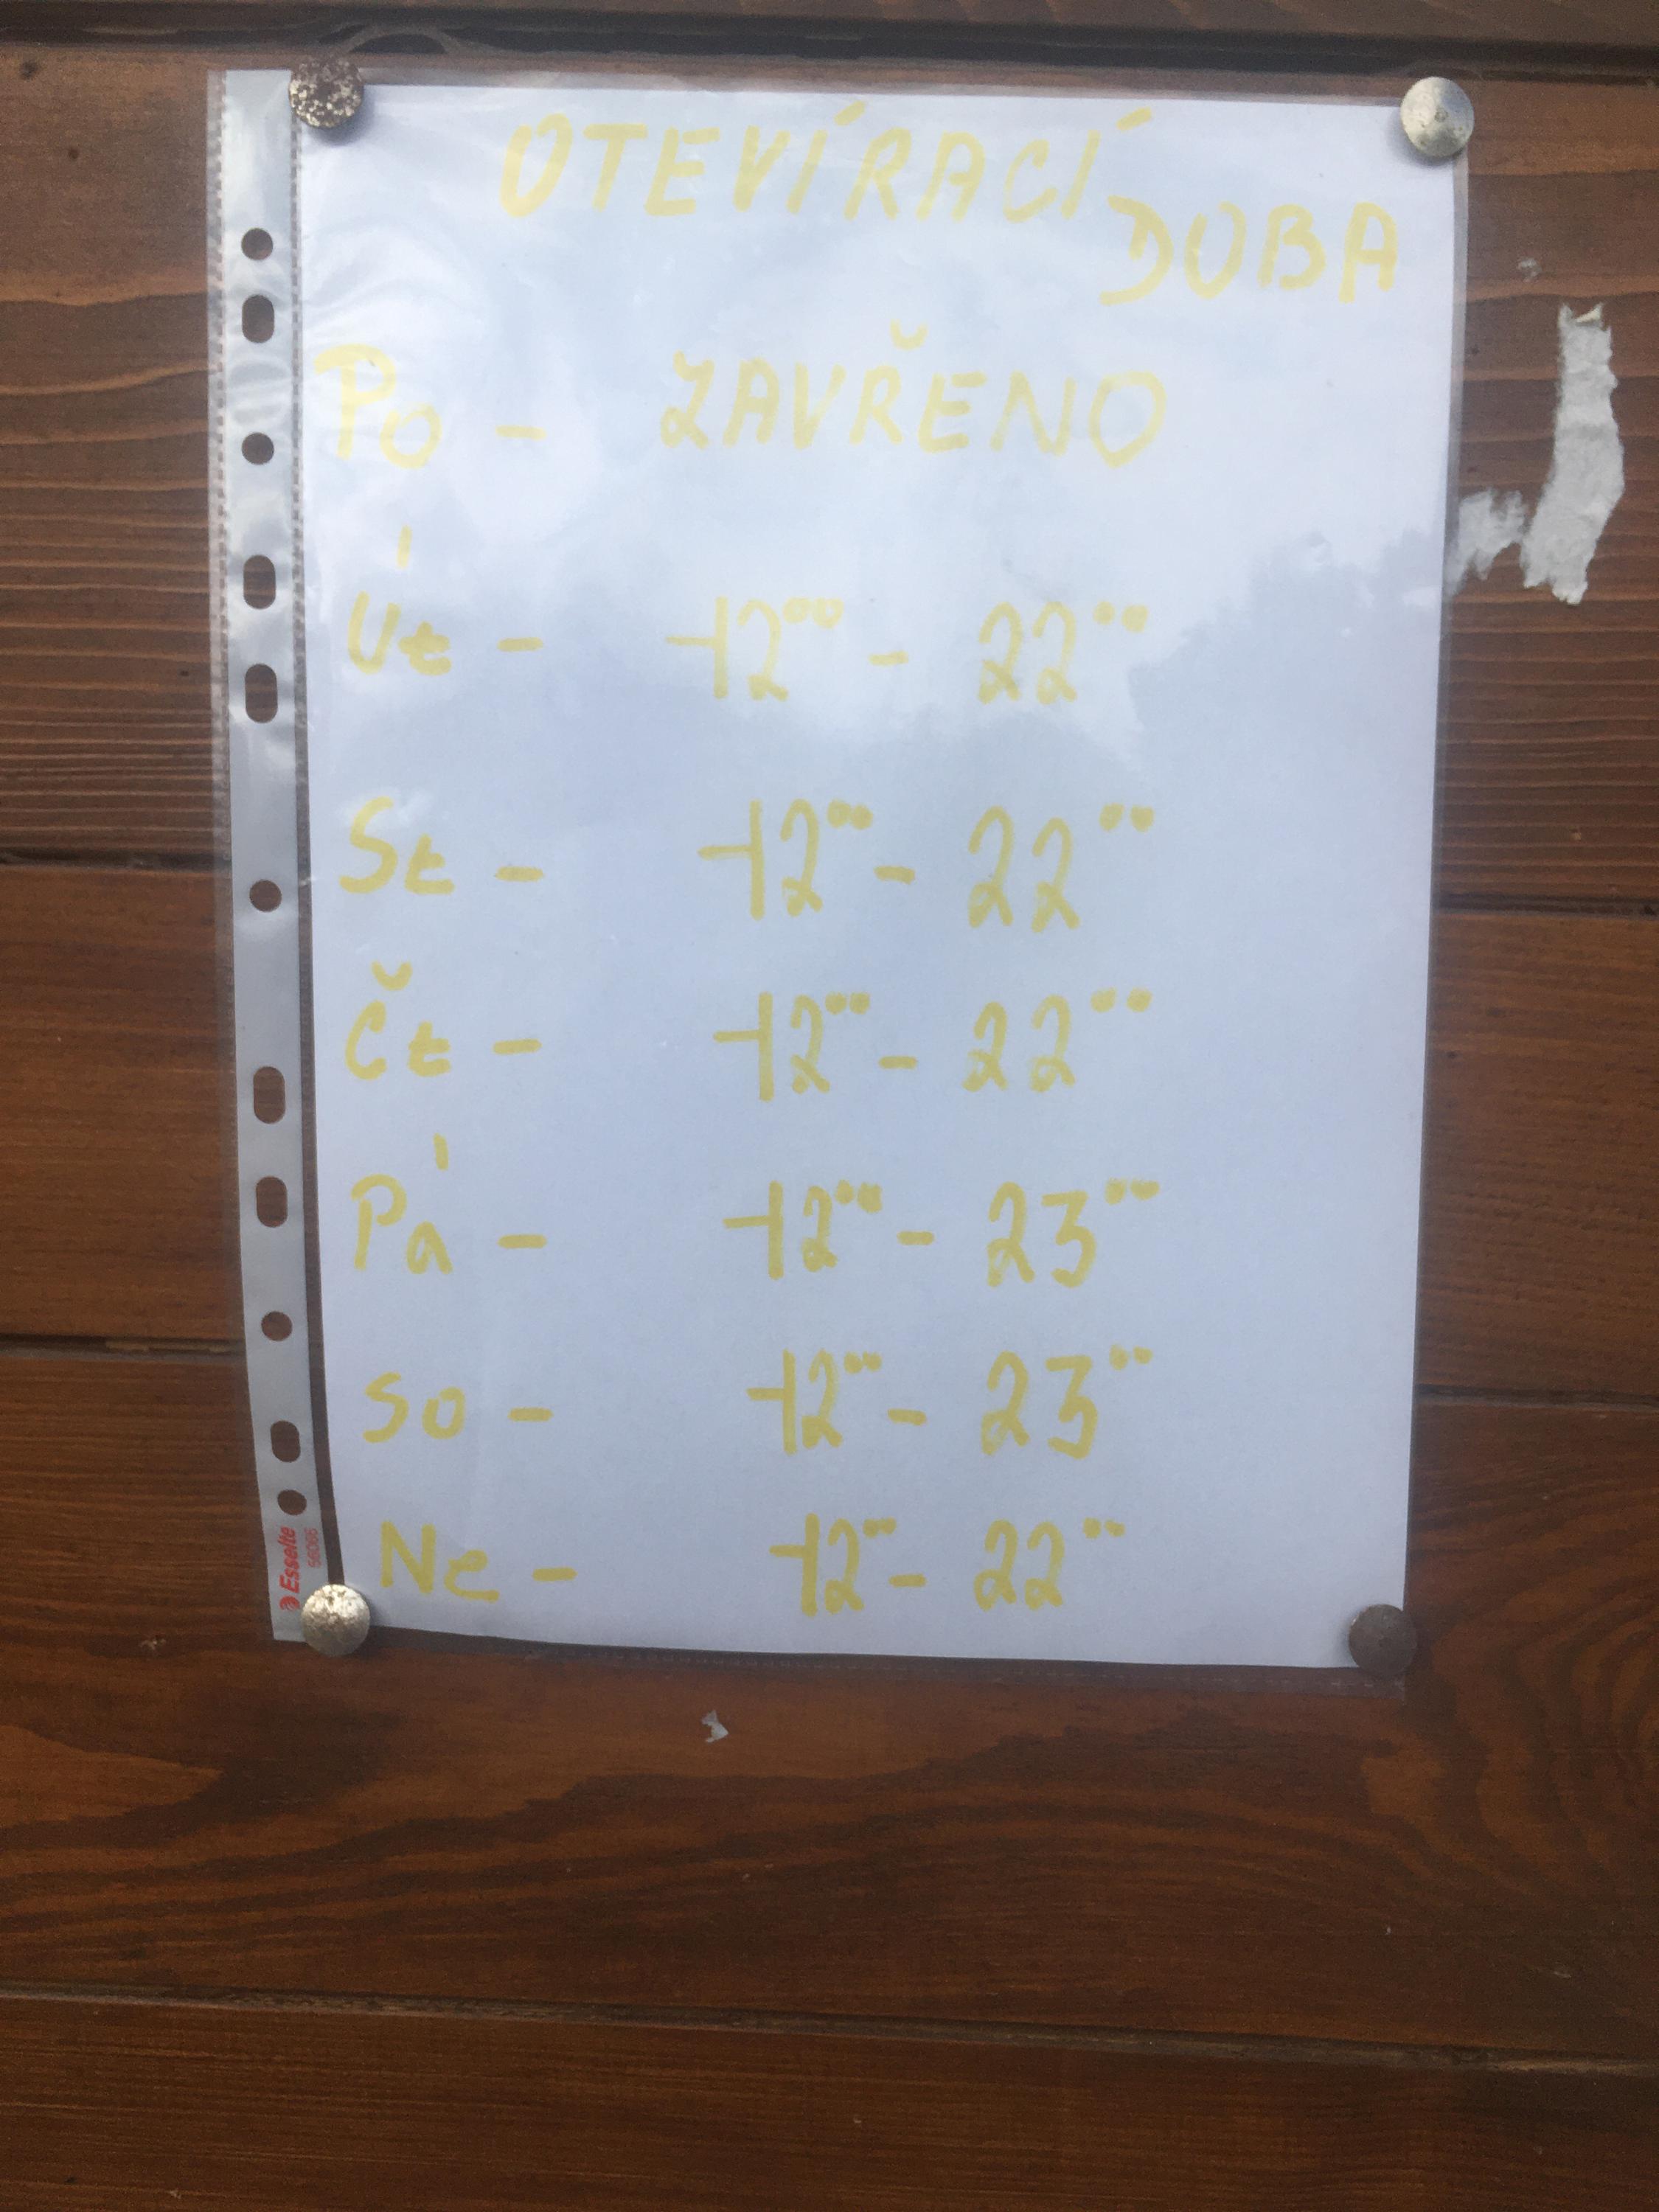 OTEVÍRACÍ DOBA
Po - ZAVŘENO
Út - 12⁰⁰ - 22⁰⁰
St - 12⁰⁰ - 22⁰⁰
Čt - 12⁰⁰ - 22⁰⁰
Pá - 12⁰⁰ - 23⁰⁰
So - 12⁰⁰ - 23⁰⁰
Ne - 12⁰⁰ - 22⁰⁰
Esselte
56066